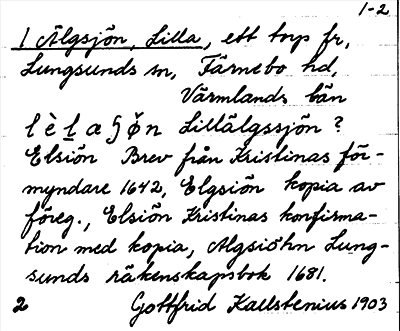 1-2
1 Älgsjön, Lilla, ett torp fr,
Lungsunds sn, Färnebo hd,
Värmlands län
Lillälgssjön?
Elsiön Brev från Kristinas för-
myndare 1642, Elgsiön kopia av
föreg., Elsiön Kristinas konfirma-
tion med kopia, Algsiöhn Lung-
sunds räkenskapsbok 1681.
2 Gottfrid Kallstenius 1903